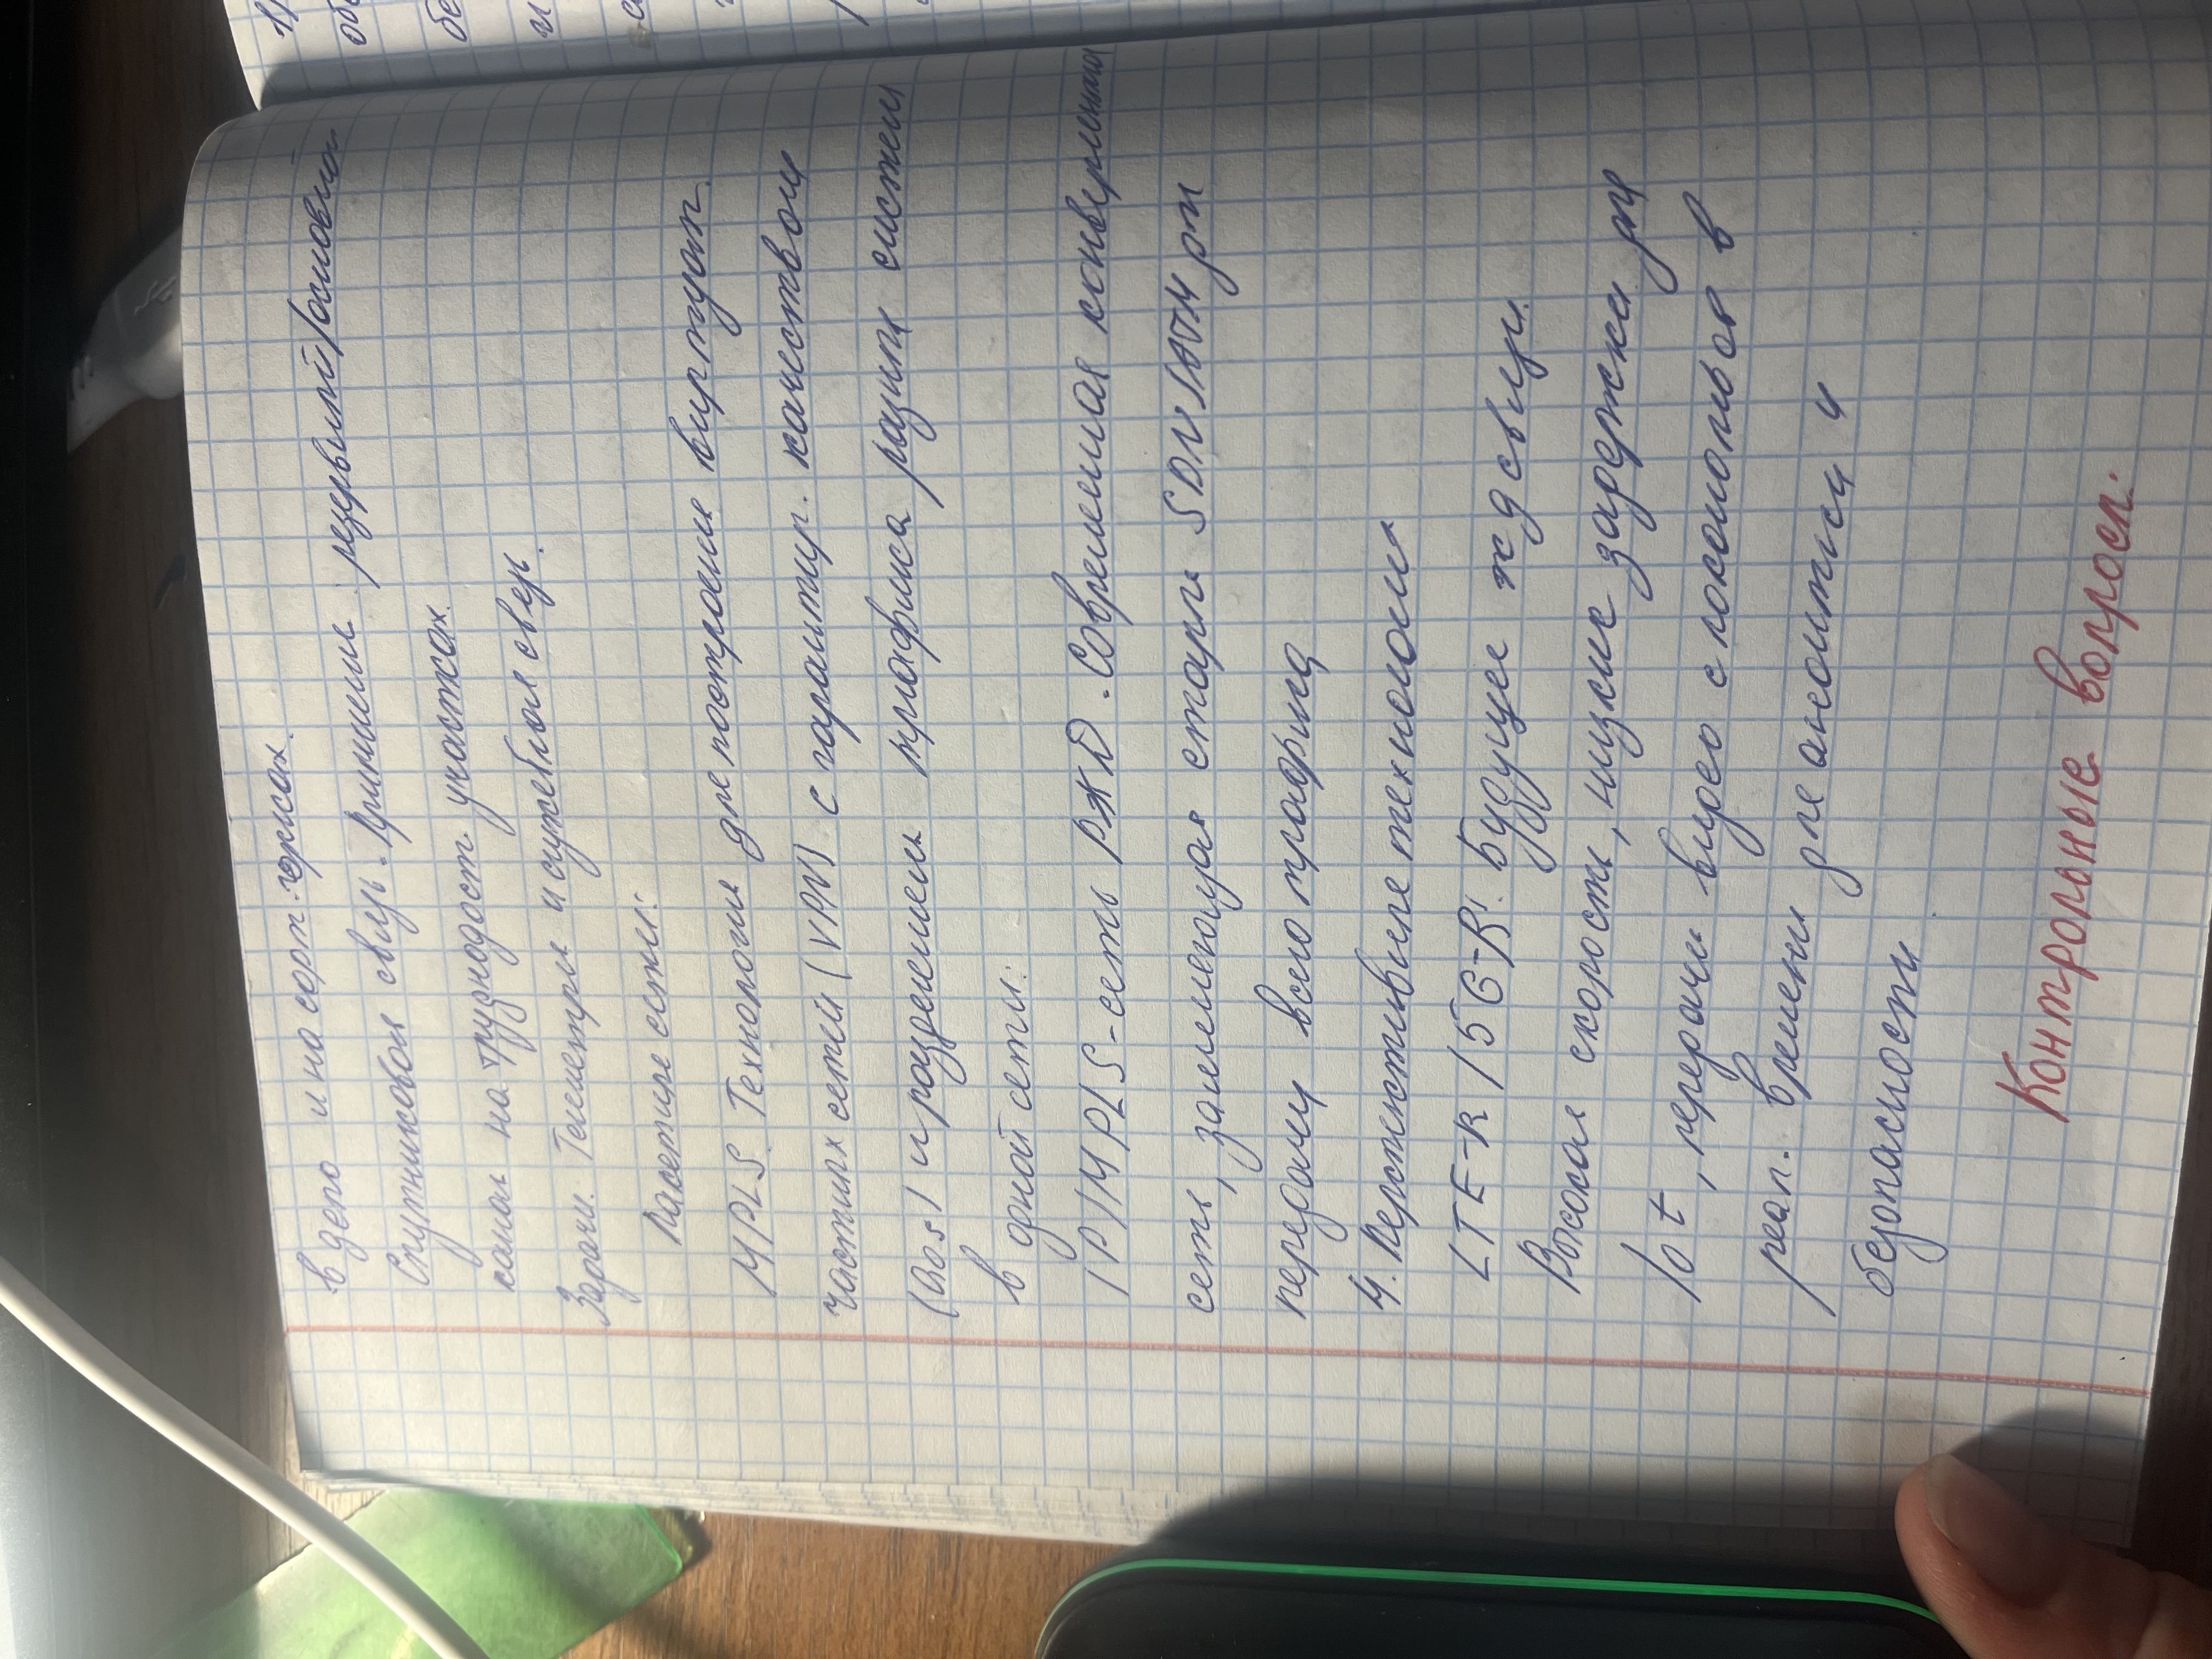 в депо и на сорт. горках.
Спутниковая связь. Применение: резервный/основной
канал на труднодост. участках.
Задачи. Телеметрия и служебная связь.
Пакетные сети:
MPLS. Технология для построения виртуал.
частных сетей (VPN) с гарантир. качеством
(QoS) и разделения трафиса разных систем
в одной сети:
IP/MPLS-сеть РЖД. Современная конвергентная
сеть, заменяющая старые SDN/ATM для
передачи всего трафика
4. Перспективные технологии
LTE-R/5G-R: Будущее жд связи.
Высокая скорость, низкие задержка для
Iot, передачи видео с локомотивов в
реал. времени для аналитики и
безопасности
Контрольные вопросы: